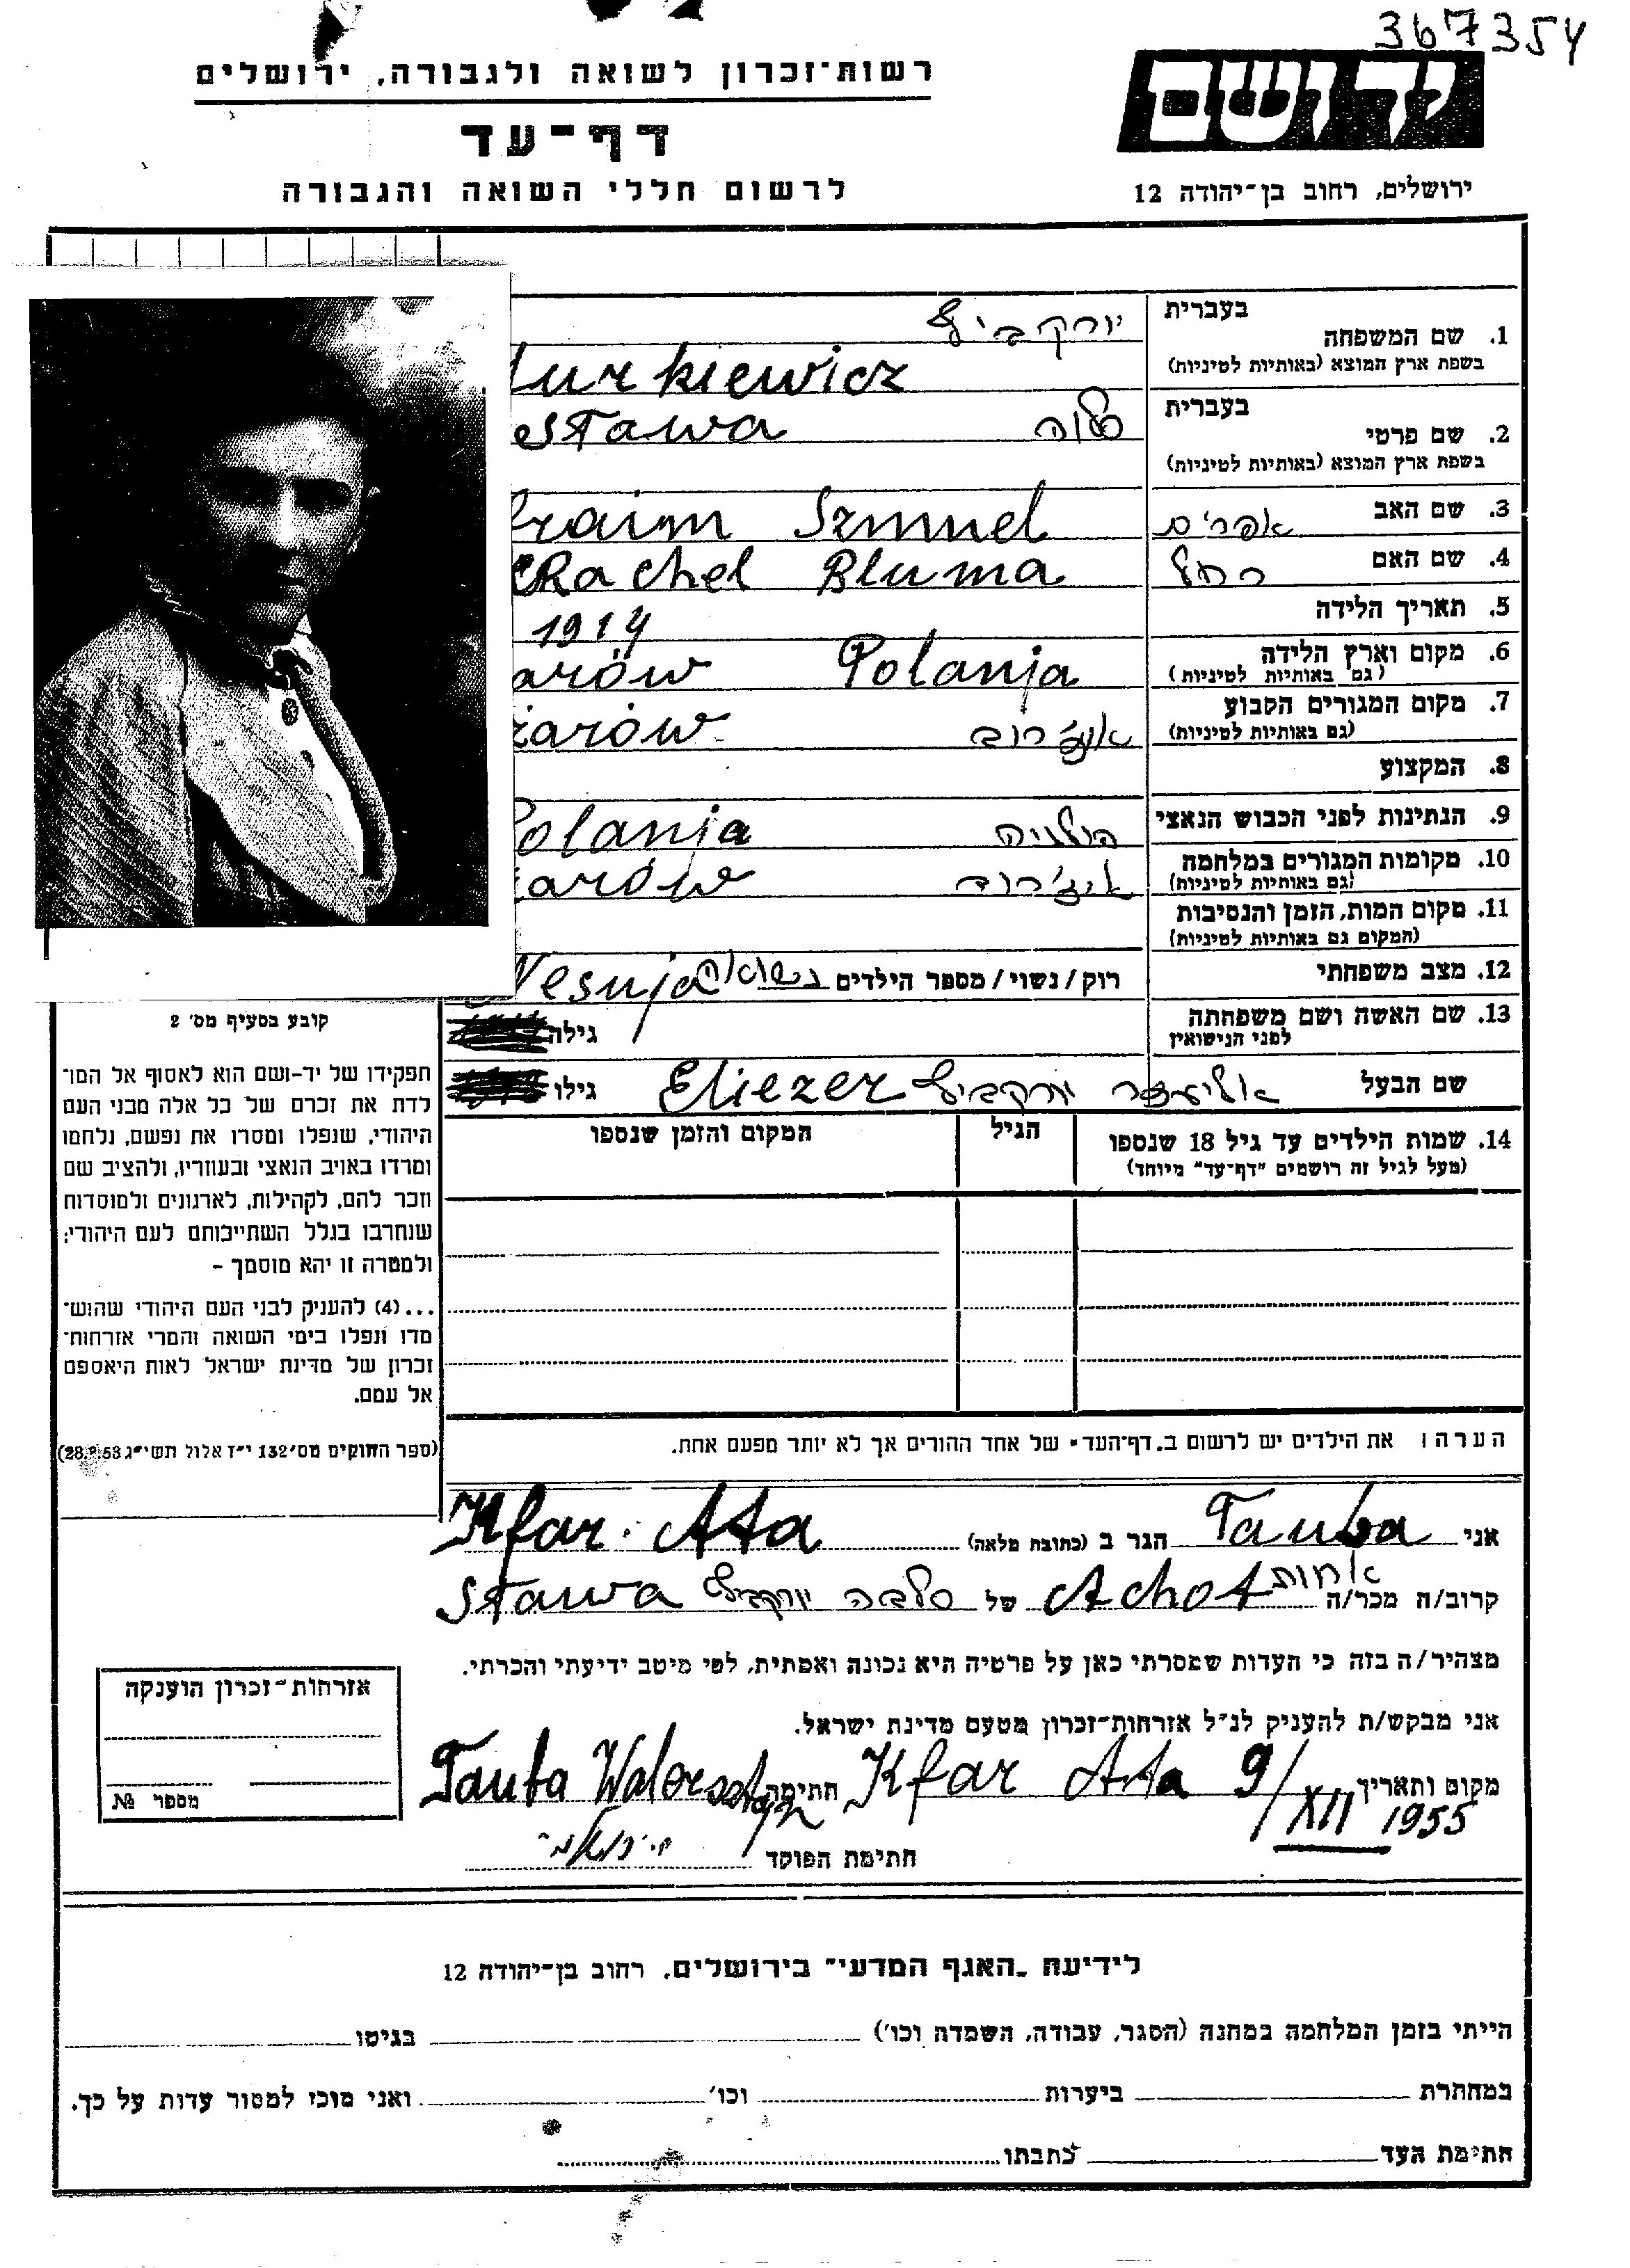 367354
רשות־זכרון לשואה ולגבורה, ירושלים
יד ושם
דף־עד
לרשום חללי השואה והגבורה
ירושלים, רחוב בן־יהודה 12
בעברית
1. שם המשפחה
יורקביץ
בשפת ארץ המוצא (באותיות לטיניות)
urkiewicz
בעברית
2. שם פרטי
סלוה
Sława
בשפת ארץ המוצא (באותיות לטיניות)
3. שם האב אפרים
fraim Szmuel
4. שם האם רחל
Rachel Bluma
5. תאריך הלידה
1914
6. מקום וארץ הלידה
(גם באותיות לטיניות)
arów Polanja
7. מקום המגורים הקבוע
(גם באותיות לטיניות)
אוז'רוב
żarów
8. המקצוע
9. הנתינות לפני הכבוש הנאצי
פולניה
Polania
10. מקומות המגורים במלחמה
(גם באותיות לטיניות)
אוז'רוב
żarów
11. מקום המות, הזמן והנסיבות
(המקום גם באותיות לטיניות)
12. מצב משפחתי
רוק/נשוי/מספר הילדים נשואה Nesuja
13. שם האשה ושם משפחתה
לפני הנישואין
גילה
שם הבעל אליעזר יורקביץ Eliezer גילו
14. שמות הילדים עד גיל 18 שנספו
(מעל לגיל זה רושמים "דף־עד" מיוחד)
הגיל
המקום והזמן שנספו
קובע בסעיף מס' 2
תפקידו של יד-ושם הוא לאסוף אל המו־
לדת את זכרם של כל אלה מבני העם
היהודי, שנפלו ומסרו את נפשם, נלחמו
ומרדו באויב הנאצי ובעוזריו, ולהציב שם
וזכר להם, לקהילות, לארגונים ולמוסדות
שנחרבו בגלל השתייכותם לעם היהודי;
ולמטרה זו יהא מוסמך –
...(4) להעניק לבני העם היהודי שהוש־
מדו ונפלו בימי השואה והמרי אזרחות־
זכרון של מדינת ישראל לאות היאספם
אל עמם.
(ספר החוקים מס' 132 י"ז אלול תשי"ג 28.8.53)
הערה: את הילדים יש לרשום ב"דף־העד" של אחד ההורים אך לא יותר מפעם אחת.
אני Tauba הגר ב (כתובת מלאה) Kfar Ata
קרוב/ה מכר/ה אחות Achot של סלבה יורקביץ Sława
מצהיר/ה בזה כי העדות שמסרתי כאן על פרטיה היא נכונה ואמתית, לפי מיטב ידיעתי והכרתי.
אני מבקש/ת להעניק לנ"ל אזרחות־זכרון מטעם מדינת ישראל.
מקום ותאריך Kfar Ata 9/XII 1955 חתימה Tauba
חתימת הפוקד
אזרחות־זכרון הוענקה
מספר №
לידיעת "האגף המדעי" בירושלים, רחוב בן־יהודה 12
הייתי בזמן המלחמה במחנה (הסגר, עבודה, השמדה וכו') בגיטו
במחתרת ביערות וכו' ואני מוכן למסור עדות על כך.
חתימת העד כתבתו